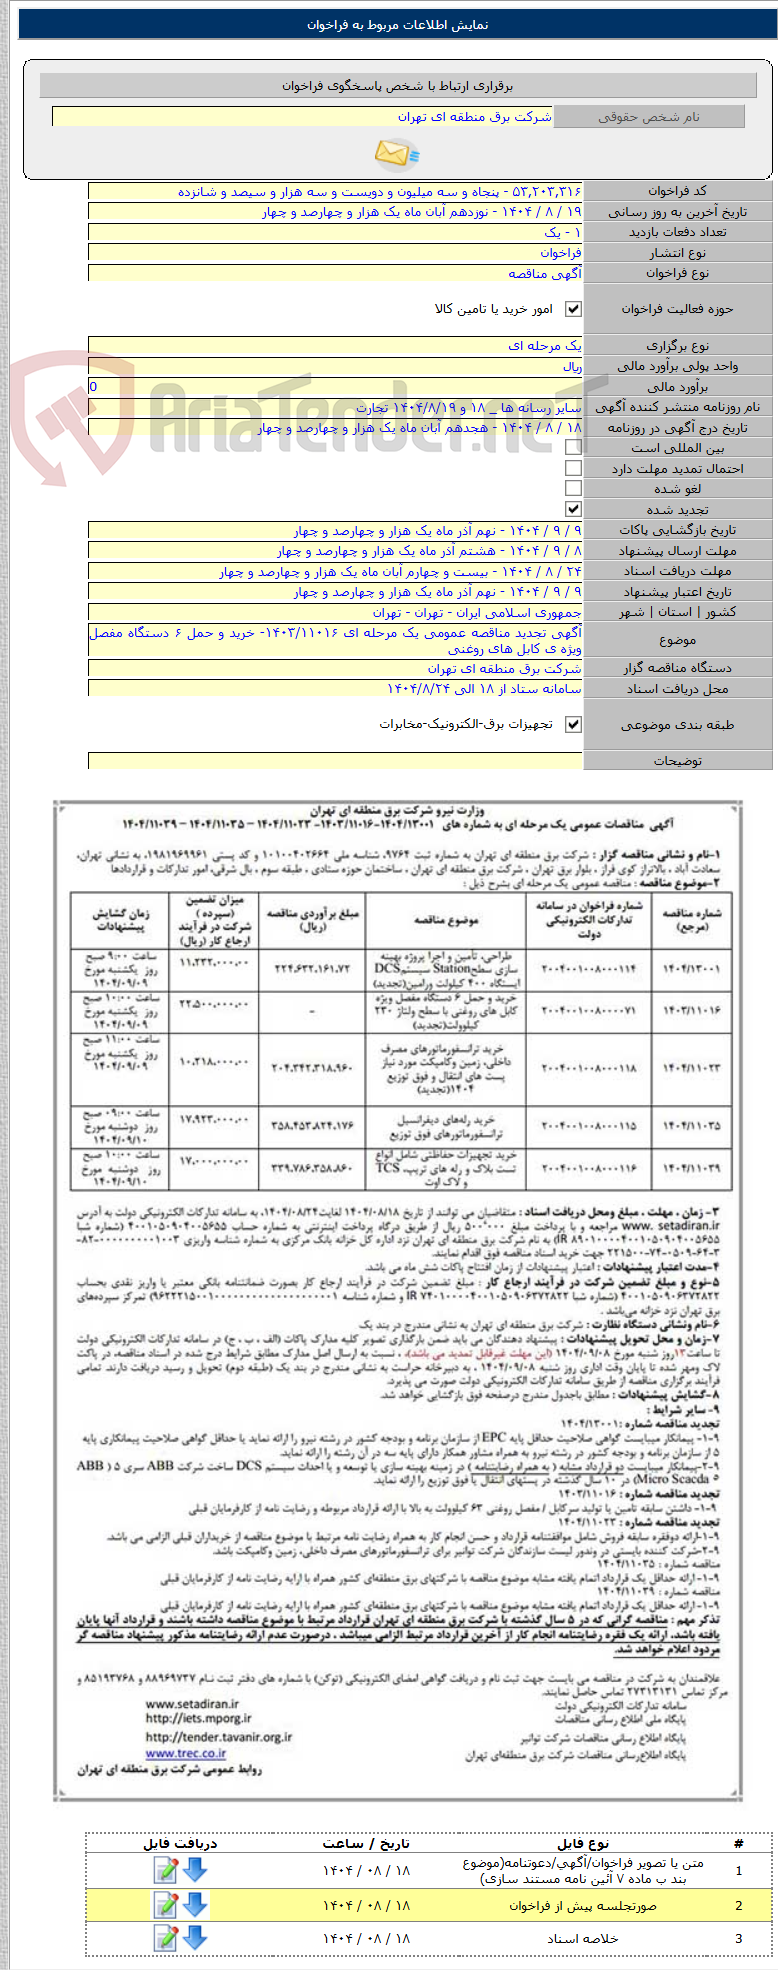 نمایش اطلاعات مربوط به فراخوان
برقراری ارتباط با شخص پاسخگوی فراخوان
نام شخص حقوقی شرکت برق منطقه ای تهران
کد فراخوان ۵۳,۲۰۳,۳۱۶ - پنجاه و سه میلیون و دویست و سه هزار و سیصد و شانزده
تاریخ آخرین به روز رسانی ۱۹ / ۸ / ۱۴۰۴ - نوزدهم آبان ماه یک هزار و چهارصد و چهار
تعداد دفعات بازدید ۱ - یک
نوع انتشار فراخوان
نوع فراخوان آگهی مناقصه
حوزه فعالیت فراخوان امور خرید یا تامین کالا
نوع برگزاری یک مرحله ای
واحد پولی برآورد مالی ریال
برآورد مالی 0
نام روزنامه منتشر کننده آگهی سایر رسانه ها _ ۱۸ و ۱۴۰۴/۸/۱۹ تجارت
تاریخ درج آگهی در روزنامه ۱۸ / ۸ / ۱۴۰۴ - هجدهم آبان ماه یک هزار و چهارصد و چهار
AriaTender.neT
بین المللی است
احتمال تمدید مهلت دارد
لغو شده
تجدید شده
تاریخ بازگشایی پاکات ۹ / ۹ / ۱۴۰۴ - نهم آذر ماه یک هزار و چهارصد و چهار
مهلت ارسال پیشنهاد ۸ / ۹ / ۱۴۰۴ - هشتم آذر ماه یک هزار و چهارصد و چهار
مهلت دریافت اسناد ۲۴ / ۸ / ۱۴۰۴ - بیست و چهارم آبان ماه یک هزار و چهارصد و چهار
تاریخ اعتبار پیشنهاد ۹ / ۹ / ۱۴۰۴ - نهم آذر ماه یک هزار و چهارصد و چهار
کشور | استان | شهر جمهوری اسلامی ایران - تهران - تهران
موضوع آگهی تجدید مناقصه عمومی یک مرحله ای ۱۴۰۳/۱۱۰۱۶- خرید و حمل ۶ دستگاه مفصل
ویژه ی کابل های روغنی
دستگاه مناقصه گزار شرکت برق منطقه ای تهران
محل دریافت اسناد سامانه ستاد از ۱۸ الی ۱۴۰۴/۸/۲۴
طبقه بندی موضوعی تجهیزات برق-الکترونیک-مخابرات
توضیحات
وزارت نیرو شرکت برق منطقه ای تهران
آگهی مناقصات عمومی یک مرحله ای به شماره های ۱۴۰۴/۱۳۰۰۱-۱۴۰۳/۱۱۰۱۶- ۱۴۰۴/۱۱۰۲۳ – ۱۴۰۴/۱۱۰۳۵ – ۱۴۰۴/۱۱۰۳۹
۱-نام و نشانی مناقصه گزار : شرکت برق منطقه ای تهران به شماره ثبت ۹۷۶۴، شناسه ملی ۱۰۱۰۰۴۰۲۶۶۴ و کد پستی ۱۹۸۱۹۶۹۹۶۱، به نشانی تهران،
سعادت آباد ، بالاتراز کوی فراز ، بلوار برق تهران ، شرکت برق منطقه ای تهران ، ساختمان حوزه ستادی ، طبقه سوم ، بال شرقی، امور تدارکات و قراردادها
۲-موضوع مناقصه : مناقصه عمومی یک مرحله ای بشرح ذیل :
شماره مناقصه (مرجع) شماره فراخوان در سامانه تدارکات الکترونیکی دولت موضوع مناقصه مبلغ برآوردی مناقصه (ریال) میزان تضمین (سپرده ) شرکت در فرآیند ارجاع کار (ریال) زمان گشایش پیشنهادات
۱۴۰۴/۱۳۰۰۱ ۲۰۰۴۰۰۱۰۰۸۰۰۰۱۱۴ طراحی، تأمین و اجرا پروژه بهینه سازی سطح Station سیستم DCS ایستگاه ۴۰۰ کیلولت ورامین(تجدید) ۲۲۴,۶۳۲,۱۶۱,۷۲ ۱۱,۲۳۲,۰۰۰,۰۰۰ ساعت ۹:۰۰ صبح روز یکشنبه مورخ ۱۴۰۴/۰۹/۰۹
۱۴۰۳/۱۱۰۱۶ ۲۰۰۴۰۰۱۰۰۸۰۰۰۰۷۱ خرید و حمل ۶ دستگاه مفصل ویژه کابل های روغنی با سطح ولتاژ ۲۳۰ کیلوولت(تجدید) - ۲۲,۵۰۰,۰۰۰,۰۰۰ ساعت ۱۰:۰۰ صبح روز یکشنبه مورخ ۱۴۰۴/۰۹/۰۹
۱۴۰۴/۱۱۰۲۳ ۲۰۰۴۰۰۱۰۰۸۰۰۰۱۱۸ خرید ترانسفورماتورهای مصرف داخلی، زمین وکامپکت مورد نیاز پست های انتقال و فوق توزیع ۱۴۰۴(تجدید) ۲۰۴,۳۴۲,۳۱۸,۹۶۰ ۱۰,۲۱۸,۰۰۰,۰۰۰ ساعت ۱۱:۰۰ صبح روز یکشنبه مورخ ۱۴۰۴/۰۹/۰۹
۱۴۰۴/۱۱۰۳۵ ۲۰۰۴۰۰۱۰۰۸۰۰۰۱۱۵ خرید رله‌های دیفرانسیل ترانسفورماتورهای فوق توزیع ۳۵۸,۴۵۳,۸۲۴,۱۷۶ ۱۷,۹۲۳,۰۰۰,۰۰۰ ساعت ۰۹:۰۰ صبح روز دوشنبه مورخ ۱۴۰۴/۰۹/۱۰
۱۴۰۴/۱۱۰۳۹ ۲۰۰۴۰۰۱۰۰۸۰۰۰۱۱۶ خرید تجهیزات حفاظتی شامل انواع تست بلاک و رله های تریپ، TCS و لاک اوت ۳۳۹,۷۸۶,۳۵۸,۸۶۰ ۱۷,۰۰۰,۰۰۰,۰۰۰ ساعت ۱۰:۰۰ صبح روز دوشنبه مورخ ۱۴۰۴/۰۹/۱۰
۳- زمان ، مهلت ، مبلغ ومحل دریافت اسناد : متقاضیان می توانند از تاریخ ۱۴۰۴/۰۸/۱۸ لغایت ۱۴۰۴/۰۸/۲۴، به سامانه تدارکات الکترونیکی دولت به آدرس
www. setadiran.ir مراجعه و با پرداخت مبلغ ۵۰۰٬۰۰۰ ریال از طریق درگاه پرداخت اینترنتی به شماره حساب ۴۰۰۱۰۵۰۹۰۴۰۰۵۶۵۵ (شماره شبا
به نام شرکت برق منطقه ای تهران نزد اداره کل خزانه بانک مرکزی به شماره شناسه واریزی
جهت خرید اسناد مناقصه فوق اقدام نمایند.
۴-مدت اعتبار پیشنهادات : اعتبار پیشنهادات از زمان افتتاح پاکات شش ماه می باشد.
۵-نوع و مبلغ تضمین شرکت در فرآیند ارجاع کار : مبلغ تضمین شرکت در فرآیند ارجاع کار بصورت ضمانتنامه بانکی معتبر یا واریز نقدی بحساب
۴۰۰۱۰۵۰۹۰۶۳۷۲۸۲۲ (شماره شبا و شماره شناسه تمرکز سپرده‌های
برق تهران نزد خزانه می‌باشد .
۶-نام ونشانی دستگاه نظارت : شرکت برق منطقه ای تهران به نشانی مندرج در بند یک
۷-زمان و محل تحویل پیشنهادات : پیشنهاد دهندگان می باید ضمن بارگذاری تصویر کلیه مدارک پاکات (الف ، ب ، ج) در سامانه تدارکات الکترونیکی دولت
تا ساعت۱۳روز شنبه مورخ ۱۴۰۴/۰۹/۰۸ (این مهلت غیرقابل تمدید می باشد)، ، نسبت به ارسال اصل مدارک مطابق شرایط درج شده در اسناد مناقصه، در پاکت
لاک ومهر شده تا پایان وقت اداری روز شنبه ۱۴۰۴/۰۹/۰۸ ، به دبیرخانه حراست به نشانی مندرج در بند یک (طبقه دوم) تحویل و رسید دریافت دارند. تمامی
فرآیند برگزاری مناقصه از طریق سامانه تدارکات الکترونیکی دولت صورت می پذیرد.
۸-گشایش پیشنهادات : مطابق باجدول مندرج درصفحه فوق بازگشایی خواهد شد.
۹- سایر شرایط :
تجدید مناقصه شماره : ۱۴۰۴/۱۳۰۰۱
۹-۱- پیمانکار میبایست گواهی صلاحیت حداقل پایه EPC از سازمان برنامه و بودجه کشور در رشته نیرو را ارائه نماید یا حداقل گواهی صلاحیت پیمانکاری پایه
۵ از سازمان برنامه و بودجه کشور در رشته نیرو به همراه مشاور همکار دارای پایه سه در آن رشته را ارائه نماید.
۹-۲-پیمانکار میبایست دو قرارداد مشابه ( به همراه رضایتنامه ) در زمینه بهینه سازی یا توسعه و یا احداث سیستم DCS ساخت شرکت ABB سری ۵ ( ABB
Micro Scacda ۵) در ۱۰ سال گذشته در پستهای انتقال یا فوق توزیع را ارائه نماید.
تجدید مناقصه شماره : ۱۴۰۳/۱۱۰۱۶
۹-۱- داشتن سابقه تامین یا تولید سرکابل / مفصل روغنی ۶۳ کیلوولت به بالا با ارائه قرارداد مربوطه و رضایت نامه از کارفرمایان قبلی
تجدید مناقصه شماره : ۱۴۰۴/۱۱۰۲۳
۹-۱-ارائه دوفقره سابقه فروش شامل موافقتنامه قرارداد و حسن انجام کار به همراه رضایت نامه مرتبط با موضوع مناقصه از خریداران قبلی الزامی می باشد.
۹-۲-شرکت کننده بایستی در وندور لیست سازندگان شرکت توانیر برای ترانسفورماتورهای مصرف داخلی، زمین وکامپکت باشد.
مناقصه شماره : ۱۴۰۴/۱۱۰۳۵
۹-۱-ارائه حداقل یک قرارداد اتمام یافته مشابه موضوع مناقصه با شرکتهای برق منطقه‌ای کشور همراه با ارایه رضایت نامه از کارفرمایان قبلی
مناقصه شماره : ۱۴۰۴/۱۱۰۳۹
۹-۱-ارائه حداقل یک قرارداد اتمام یافته مشابه موضوع مناقصه با شرکتهای برق منطقه‌ای کشور همراه با ارایه رضایت نامه از کارفرمایان قبلی
تذکر مهم : مناقصه گرانی که در ۵ سال گذشته با شرکت برق منطقه ای تهران قرارداد مرتبط با موضوع مناقصه داشته باشند و قرارداد آنها پایان
یافته باشد، ارائه یک فقره رضایتنامه انجام کار از آخرین قرارداد مرتبط الزامی میباشد . درصورت عدم ارائه رضایتنامه مذکور پیشنهاد مناقصه گر
مردود اعلام خواهد شد.
علاقمندان به شرکت در مناقصه می بایست جهت ثبت نام و دریافت گواهی امضای الکترونیکی (توکن) با شماره های دفتر ثبت نـام ۸۸۹۶۹۷۳۷ و ۸۵۱۹۳۷۶۸ و
مرکز تماس ۲۷۳۱۳۱۳۱ تماس حاصل نمایند.
سامانه تدارکات الکترونیکی دولت www.setadiran.ir
پایگاه ملی اطلاع رسانی مناقصات http://iets.mporg.ir
پایگاه اطلاع رسانی مناقصات شرکت توانیر http://tender.tavanir.org.ir
پایگاه اطلاع‌رسانی مناقصات شرکت برق منطقه‌ای تهران www.trec.co.ir
روابط عمومی شرکت برق منطقه ای تهران
# نوع فایل تاریخ / ساعت دریافت فایل
1 متن یا تصویر فراخوان/آگهي/دعوتنامه(موضوع بند ب ماده ۷ آئین نامه مستند سازی) ۱۸ / ۰۸ / ۱۴۰۴
2 صورتجلسه پیش از فراخوان ۱۸ / ۰۸ / ۱۴۰۴
3 خلاصه اسناد ۱۸ / ۰۸ / ۱۴۰۴